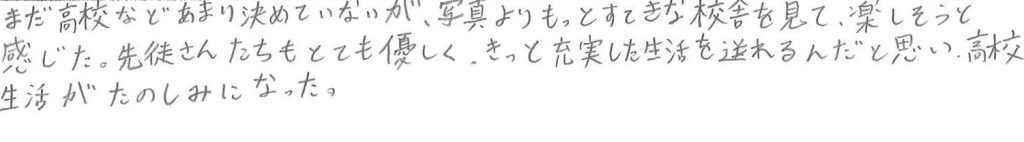 まだ高校などあまり決めていないが、写真よりもっとすてきな校舎を見て、楽しそうと
感じた。先徒さんたちもとても優しく、きっと充実した生活を送れるんだと思い、高校
生活がたのしみになった。